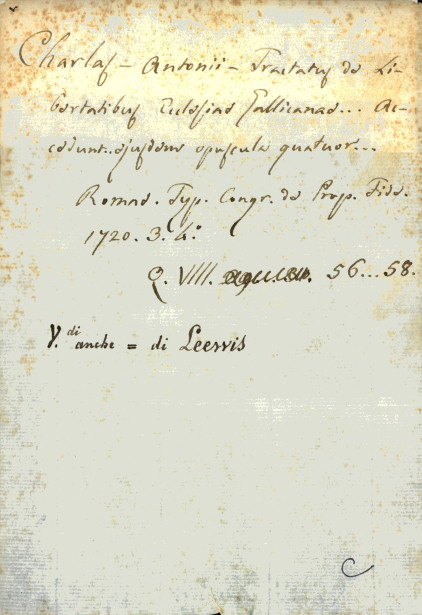 Charlas - Antonii - Tractatus de Li-
bertatibus Ecclesiae Gallicanae... Ac-
cedunt ejusdem opuscula quatuor...
Romae. Typ. Congr. de Prop. Fide.
1720. 3. 4.º
Q. VIII. 56...58.
V.di anche = di Leewis
C